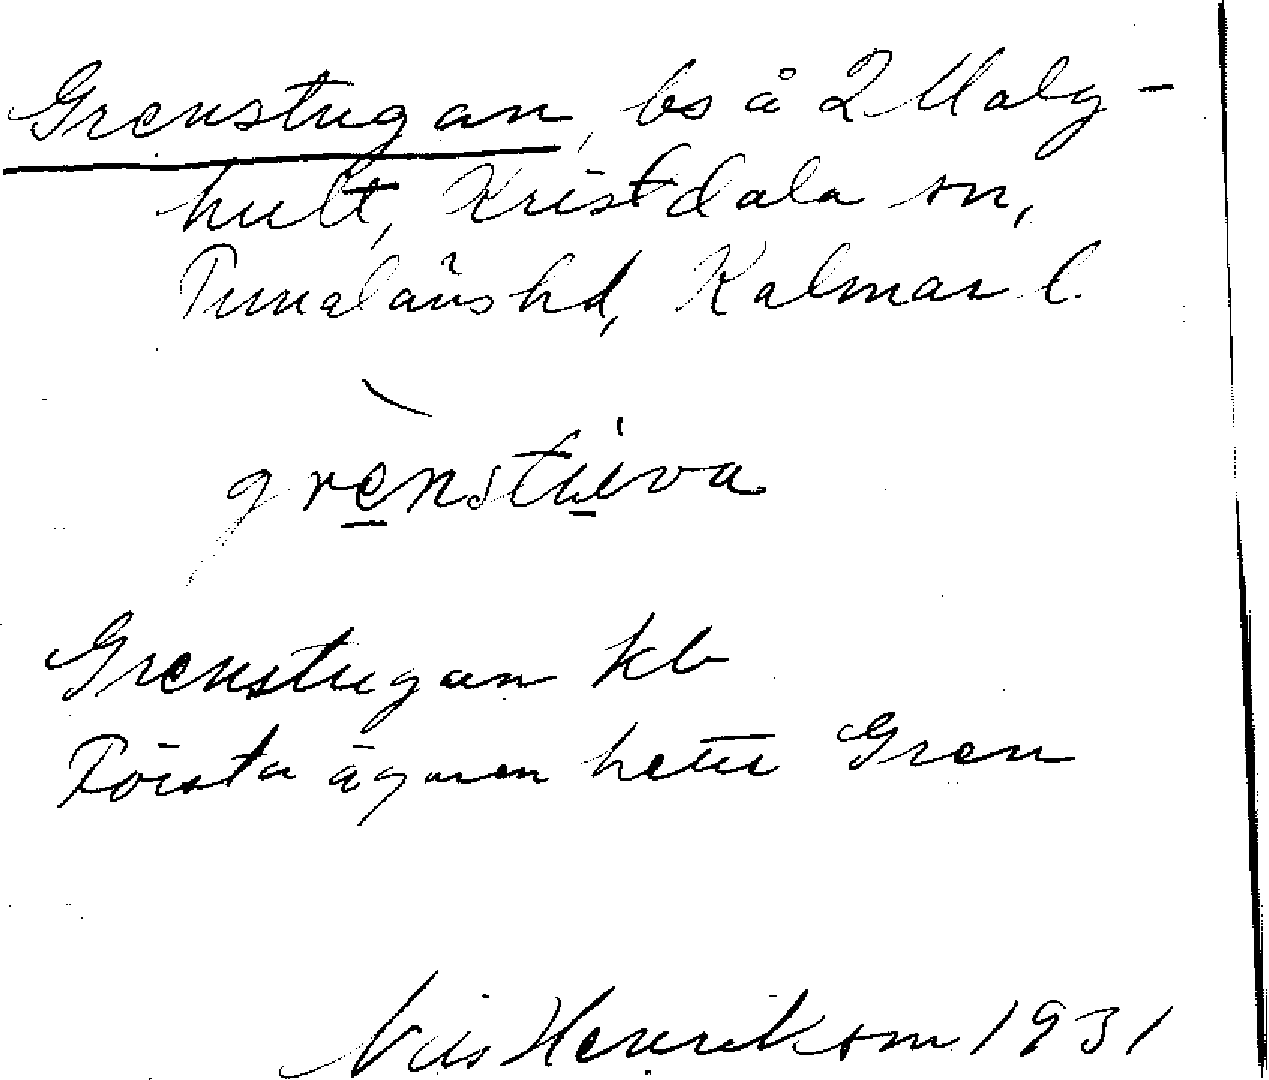 Grenstugan, bs å 2 Malg-
hult, Kristdala sn,
Tunaläns hd, Kalmar l.
grènstùva
Grenstugan kb
Första ägaren hette Gren
Nils Henrikson 1931